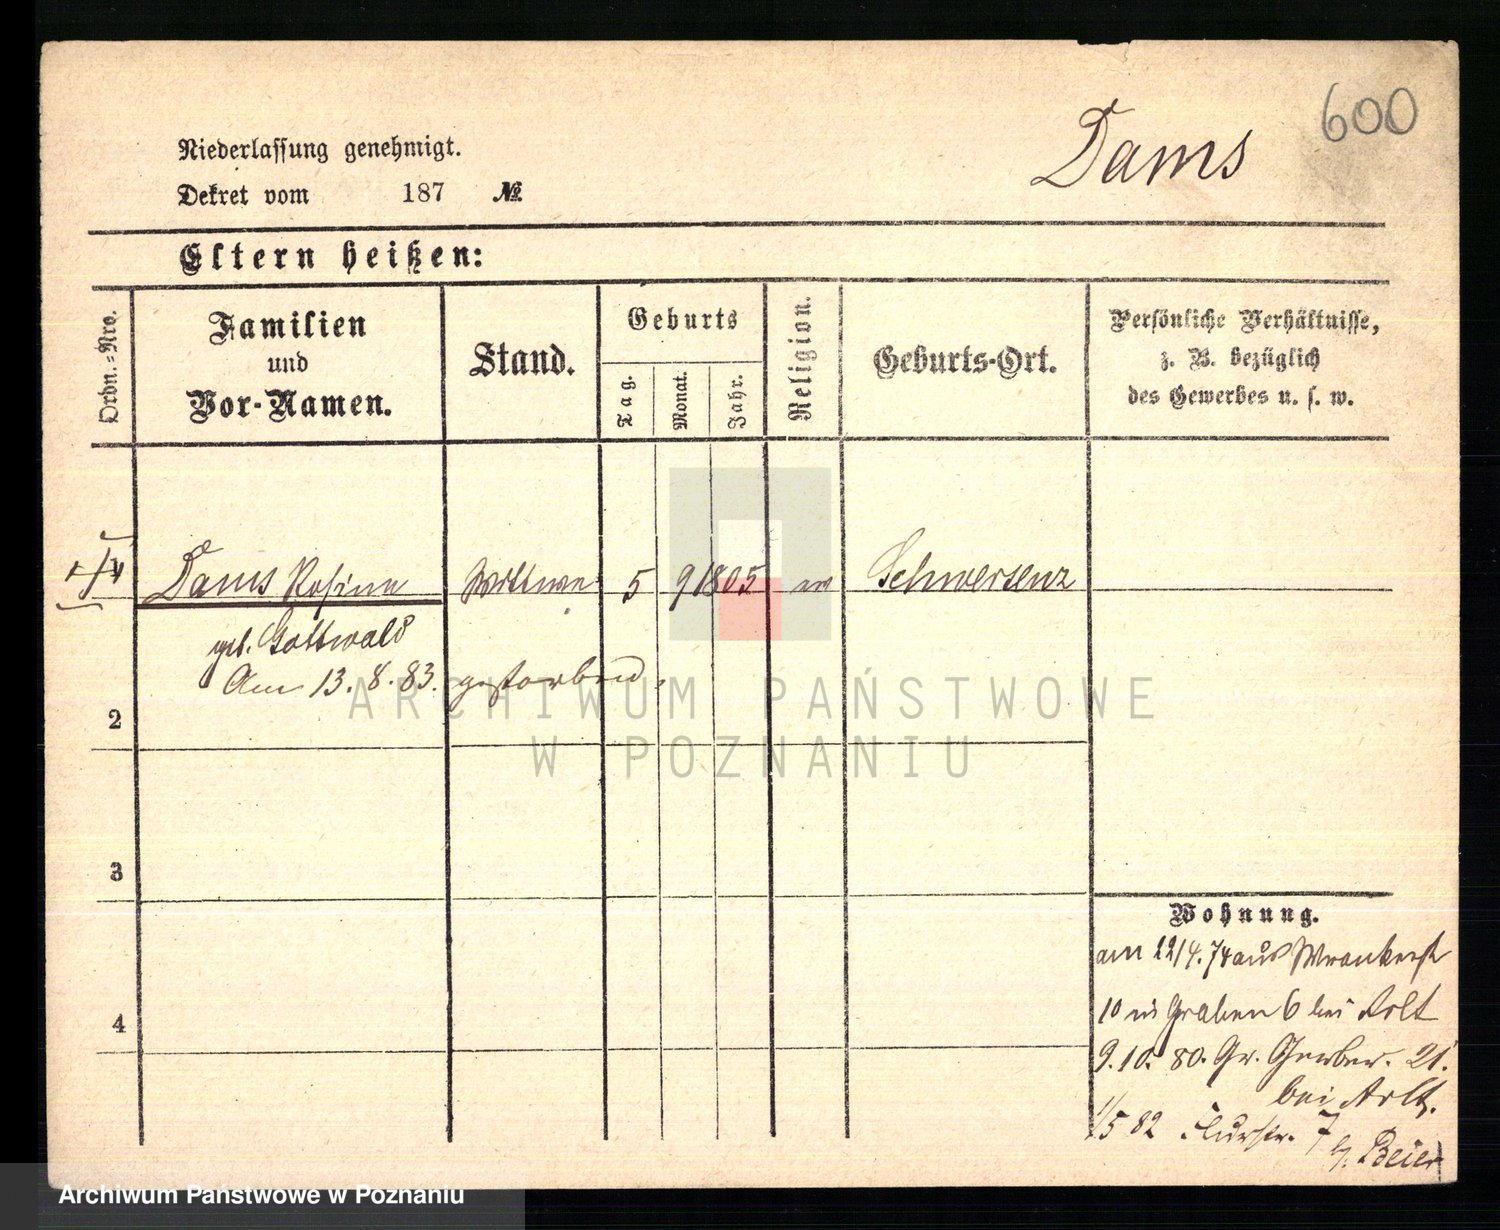 600
Dams
Niederlassung genehmigt.
Dekret vom 187 №
Eltern heißen:
Ordn.=Nro.
Familien
und
Vor-Namen.
Stand.
Geburts
Tag.
Monat.
Jahr.
Religion.
Geburts-Ort.
Persönliche Verhältnisse,
z. B. bezüglich
des Gewerbes u. s. w.
Dams Rosina Wittwe 5 9 1805 ev Schwersenz
geb. Gottwald
Am 13. 8. 83. gestorben.
2
3
4
Wohnung.
am 22/4. 74 aus Wronkerst
10 n. Graben 6 bei Arlt
9. 10. 80. Gr. Gerber. 21.
bei Arlt.
1/5 82 Flurstr. 7
b. Beier
ARCHIWUM PAŃSTWOWE
W POZNANIU
Archiwum Państwowe w Poznaniu